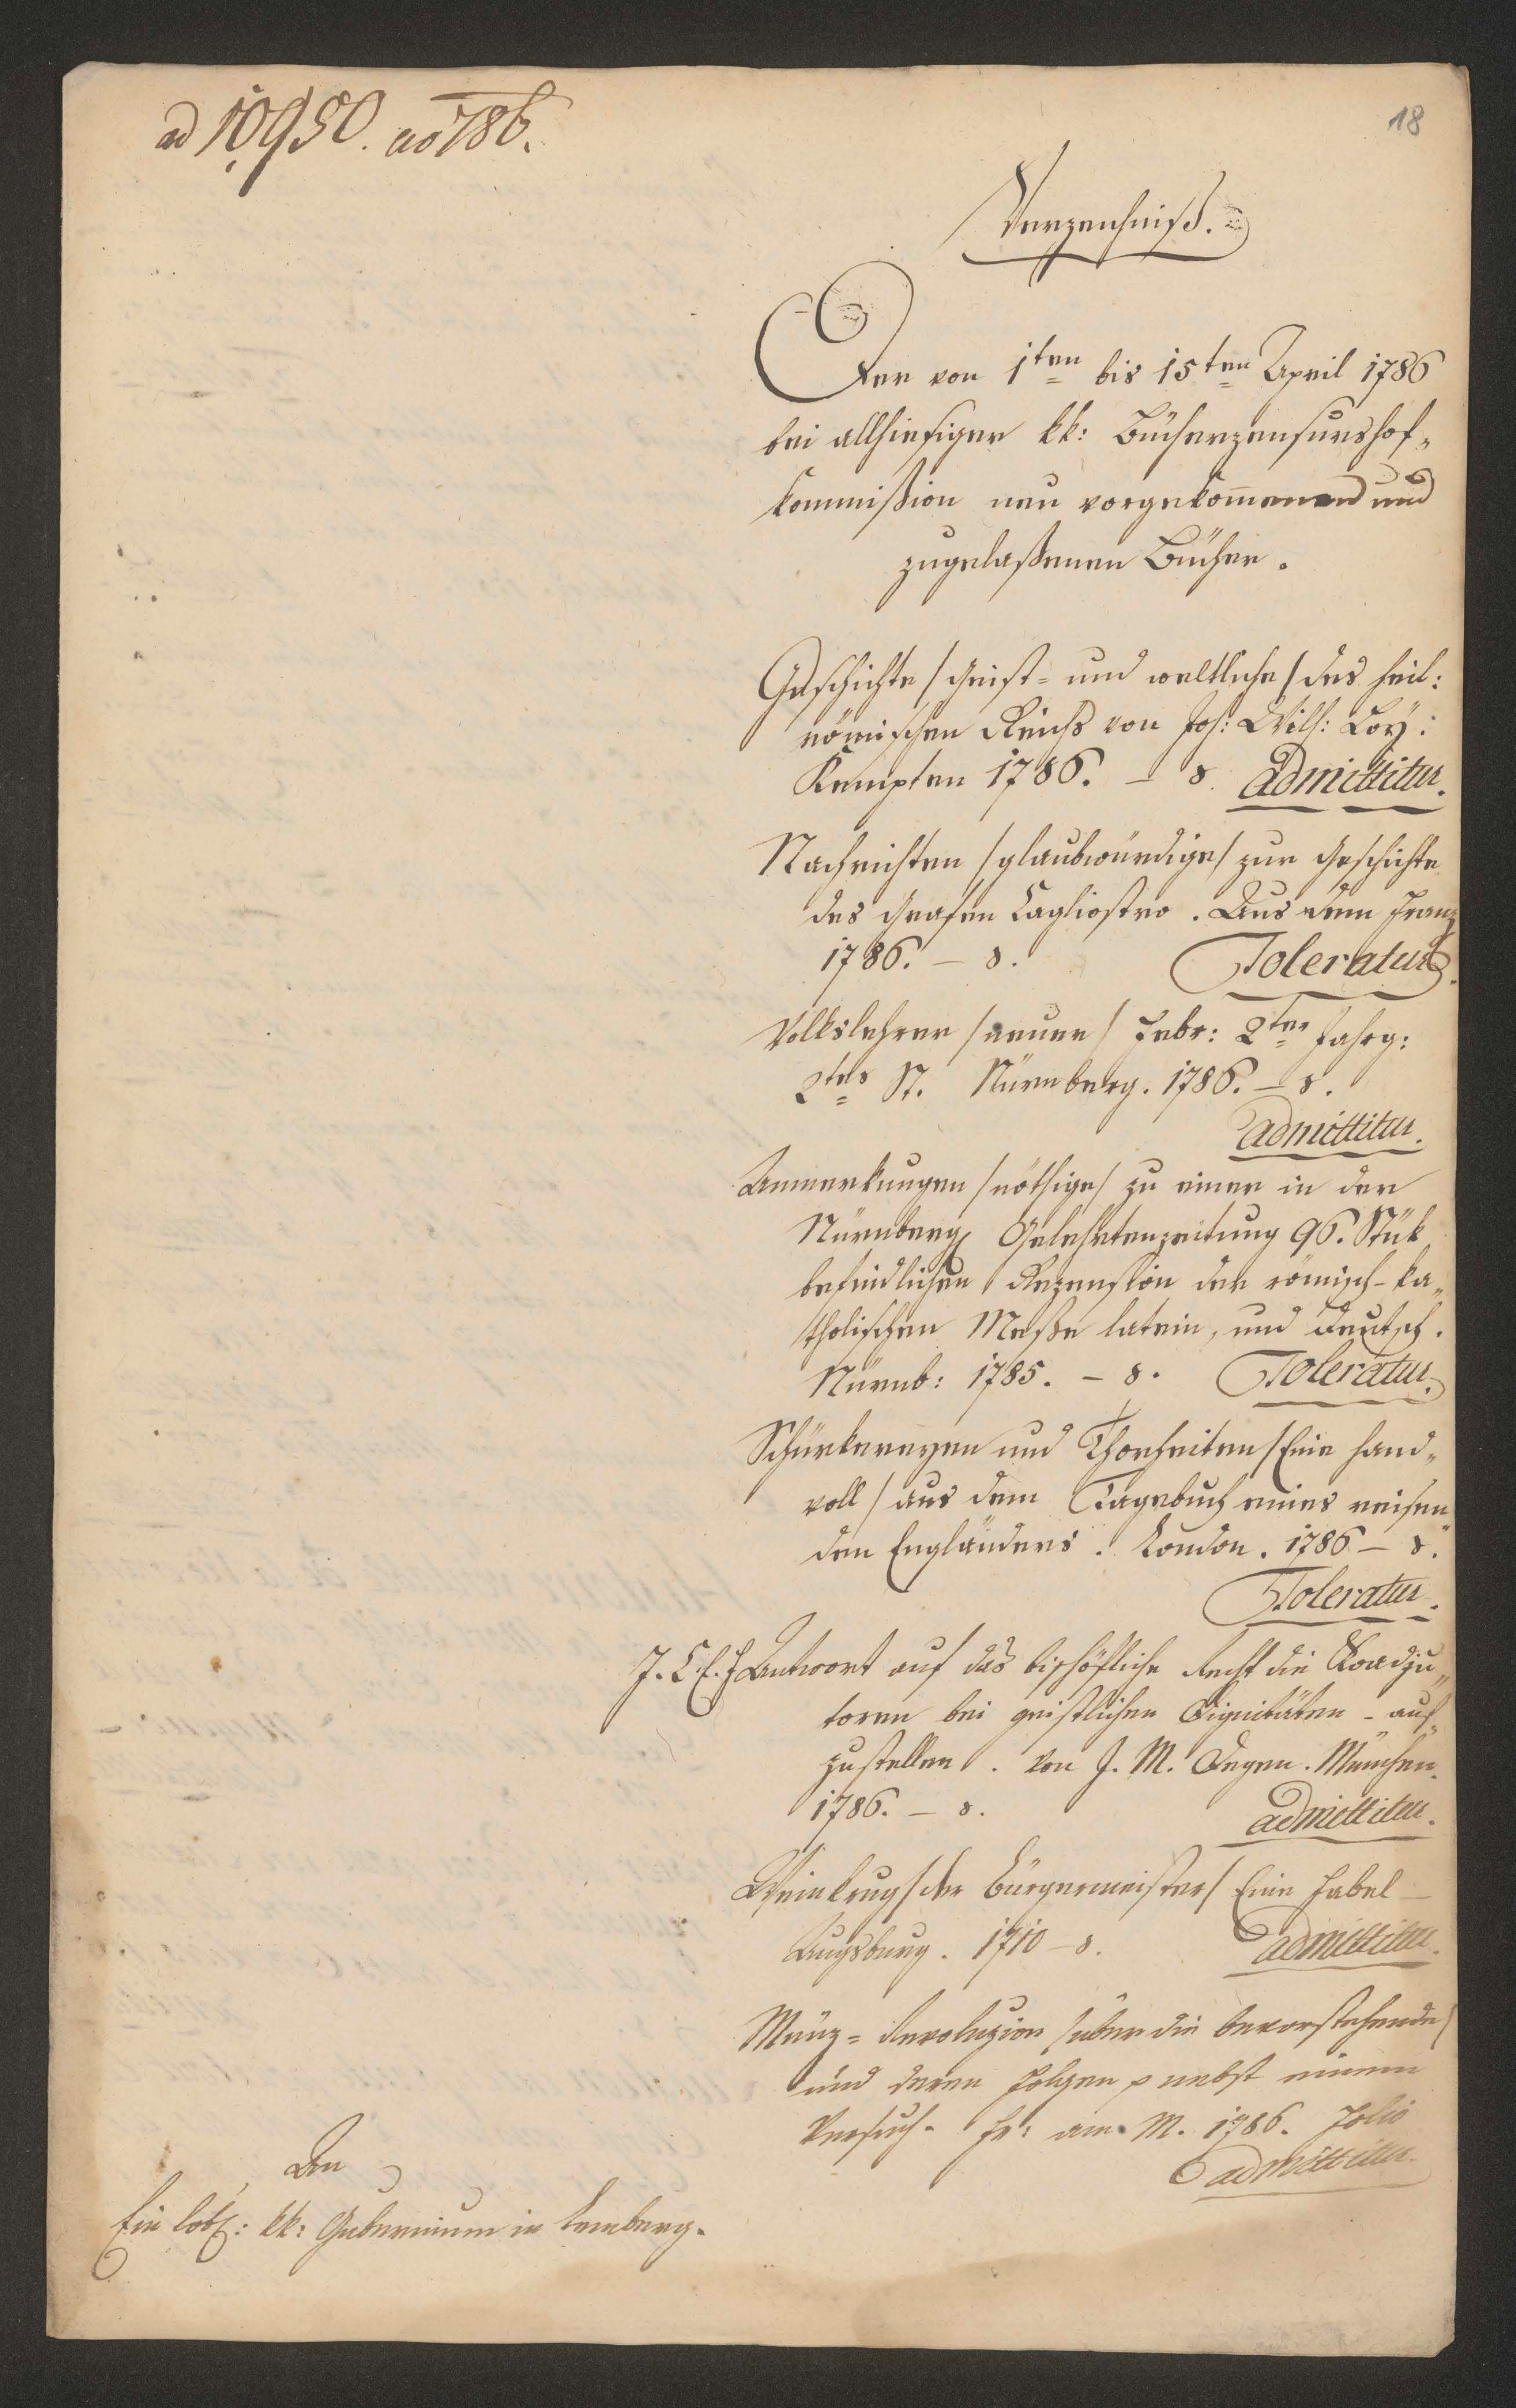 ad 10950. ao 786.
18
Verzeichniß.
Der von 1ten bis 15ten April 1786
bei allhiesiger kk: Bücherzensurshof-
kommißion neu vorgekom̄enen und
zugelaßenen Bücher.
Geschichte /Geist- und weltliche/ des heil:
römischen Reichs von Joh: Wilh: Loy:
Kempten 1786. – 8. admittitur.
Nachrichten /glaubwürdige/ zur Geschichte
des Grafen Cagliostro. Aus dem Franz
1786. – 8. Toleratur.
Volkslehrer /neuer/ Febr: 2ter Jahrg:
2tes St. Nürnberg. 1786. – 8.
admittitur.
Anmerkungen /nöthige/ zu einer in der
Nürnberg Gelehrtenzeitung 96. Stük
befindlichen Rezension der römisch-ka-
tholischen Meße latein, und deutsch.
Nürnb: 1785. – 8. Toleratur.
Schurkereyen und Thorheiten /Eine Hand-
voll/ aus dem Tagebuch eines reisen-
den Engländers. London. 1786 – 8.
Toleratur.
Antwort auf das bischöfliche Recht die Koadju-
toren bei geistlichen Dignitäten - auf-
zustellen. Von J. M. Degen. München.
1786. – 8. admittitur.
Weinkrug /der Bürgermeister/ Eine Fabel –
Augsburg. 1710 – 8. admittitur.
Münz-Revoluzion /über die bevorstehende/
und deren Folgen p nebst einem
Versuch. Fr: am M. 1786. Folio
admittitur.
An
Ein löbl: kk: Gubernium in Lemberg.